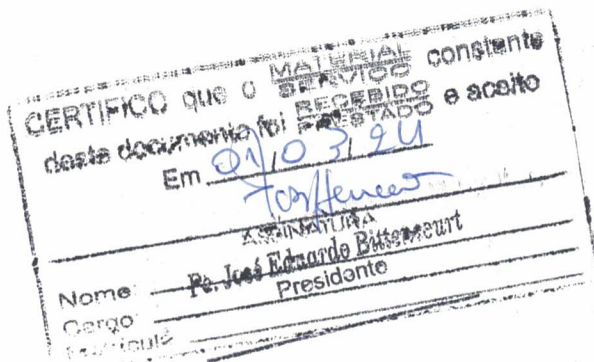 CERTIFICO que o MATERIAL constante
SERVIÇO
deste documento foi RECEBIDO e aceito
PRESTADO
Em 01/03/24
ASSINATURA
Nome: Pe. José Eduardo Bittencourt
Cargo: Presidente
Matrícula